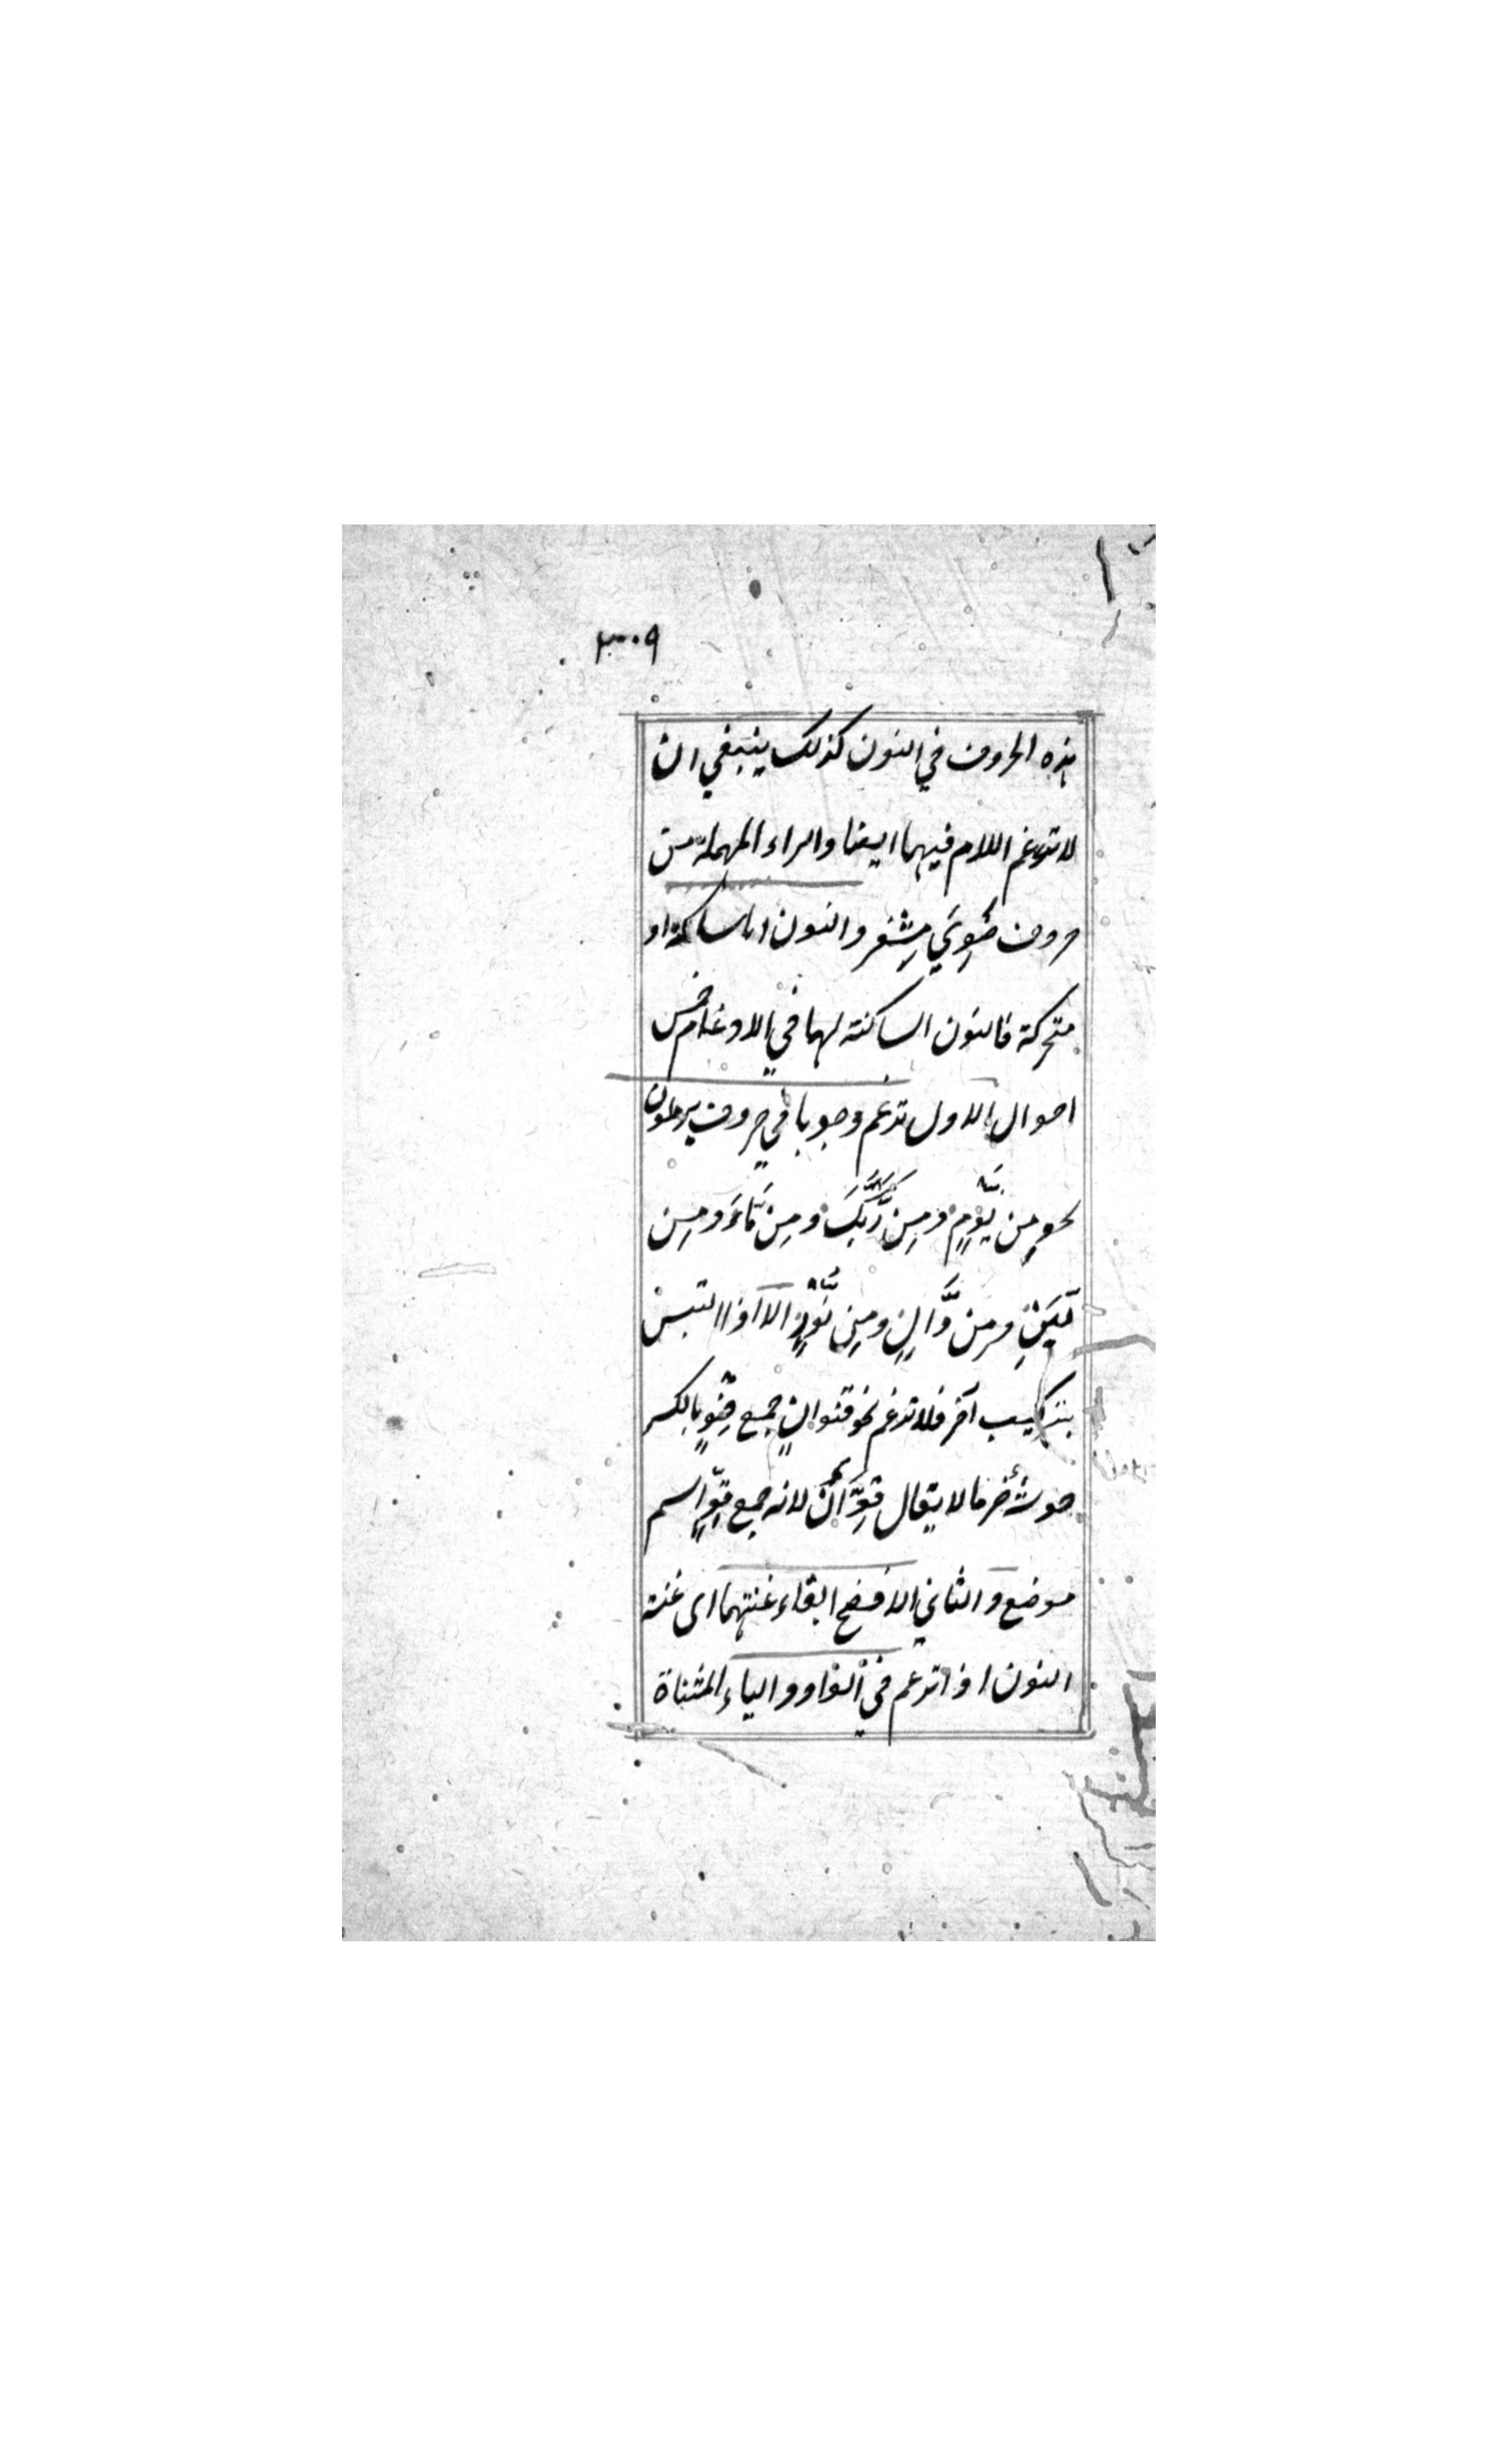 ٣٠٠٩
هذه الحروف في النون كذلك ينبغي ان
لا تدغم اللام فيهما ايضا والراء المهملة من
حروف ضَوِيَ مِشْفَر والنون اما ساكنة او
متحركة فالنون الساكنة لها في الادغام خمس
احوال الاول تدغم وجوبا في حروف يرملون
نحو مِن يَّوْمٍ ومِن رَّبِّكَ ومِن مَّاءٍ ومِن
لَّيِّنٍ ومن وَّالٍ ومِن نُّورٍ الا اذا التبس
بتركيب آخر فلا تدغم نحو قنوان جمع قِنْوٍ بالكسر
لانه جمع قوّ اسم
موضع والثاني الافصح ابقاء غنتهما اى غنة
النون اذا تدغم في الواو والياء المثناة